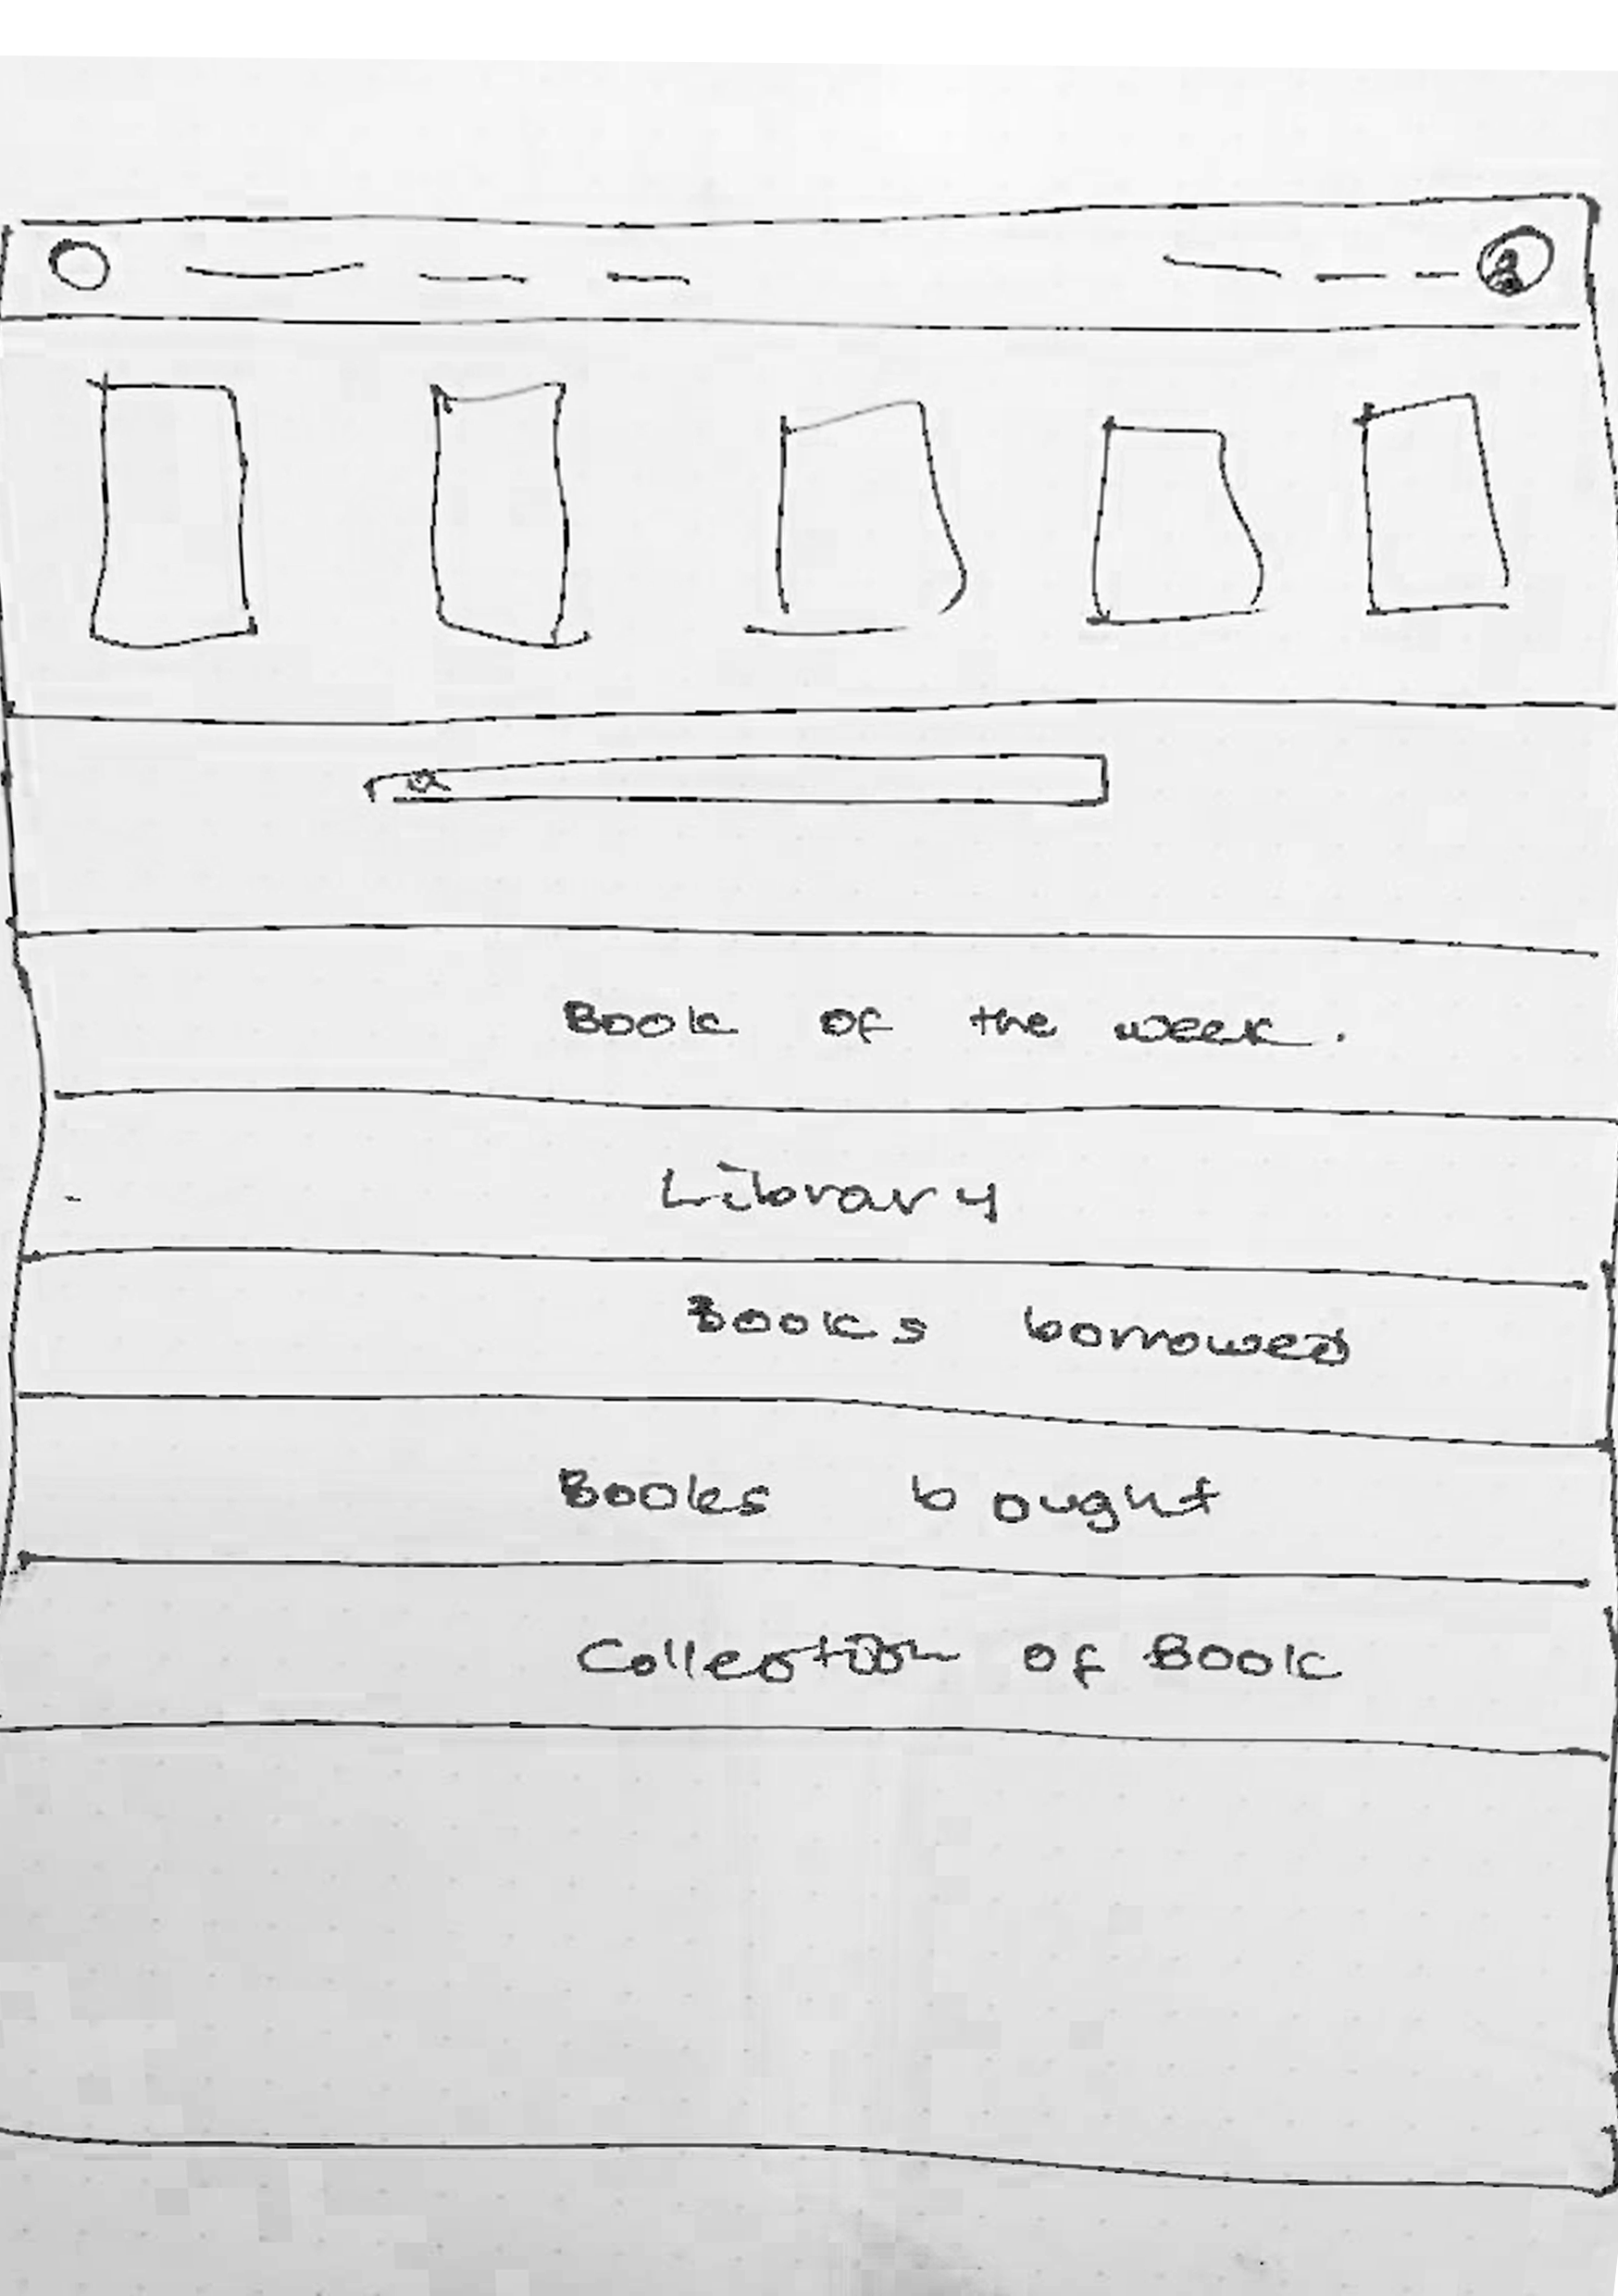 Book of the week.
Library
Books borrowed
Books bought
Collection of Book